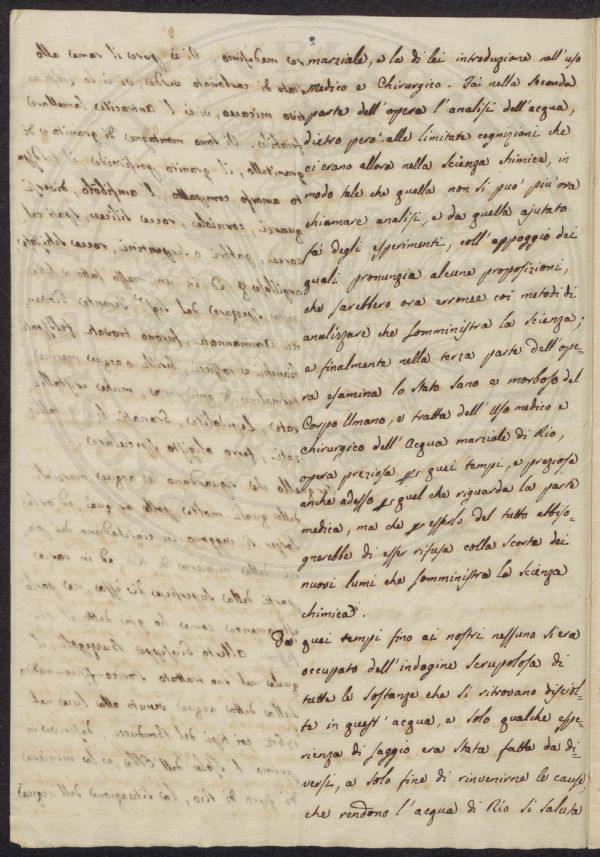 marziale, e la di lei introduzione nell'uso
Medico e Chirurgico. Fai nella seconda
parte dell'opera l'analisi dell'acqua,
dietro però alle limitate cognizioni che
ci erano allora nella scienza chimica, in
modo tale che quella non si può più ora
chiamare analisi, e da quella ajutato
fà degli esperimenti, coll'appoggio dei
quali pronunzia alcune proposizioni,
che sarebbero ora erronee coi metodi di
analizzare che somministra la scienza;
e finalmente nella terza parte dell'ope-
ra esamina lo stato sano e morboso del
Corpo Umano, e tratta dell'uso medico e
chirurgico dell'Acqua marziale di Rio,
opera preziosa per quei tempi, e preziosa
anche adesso per quel che riguarda la parte
medica, ma che per esserlo del tutto abbiso-
gnerebbe di esser rifusa colla scorta dei
nuovi lumi che somministra la scienza
chimica.
Da quei tempi fino ai nostri nessuno si era
occupato dell'indagine scrupolosa di
tutte le sostanze che si ritrovano disciol-
te in quest'acqua, e solo qualche espe-
rienza di saggio era stata fatta da di-
versi, a solo fine di rinvenirne le cause,
che rendono l'acqua di Rio sì saluta